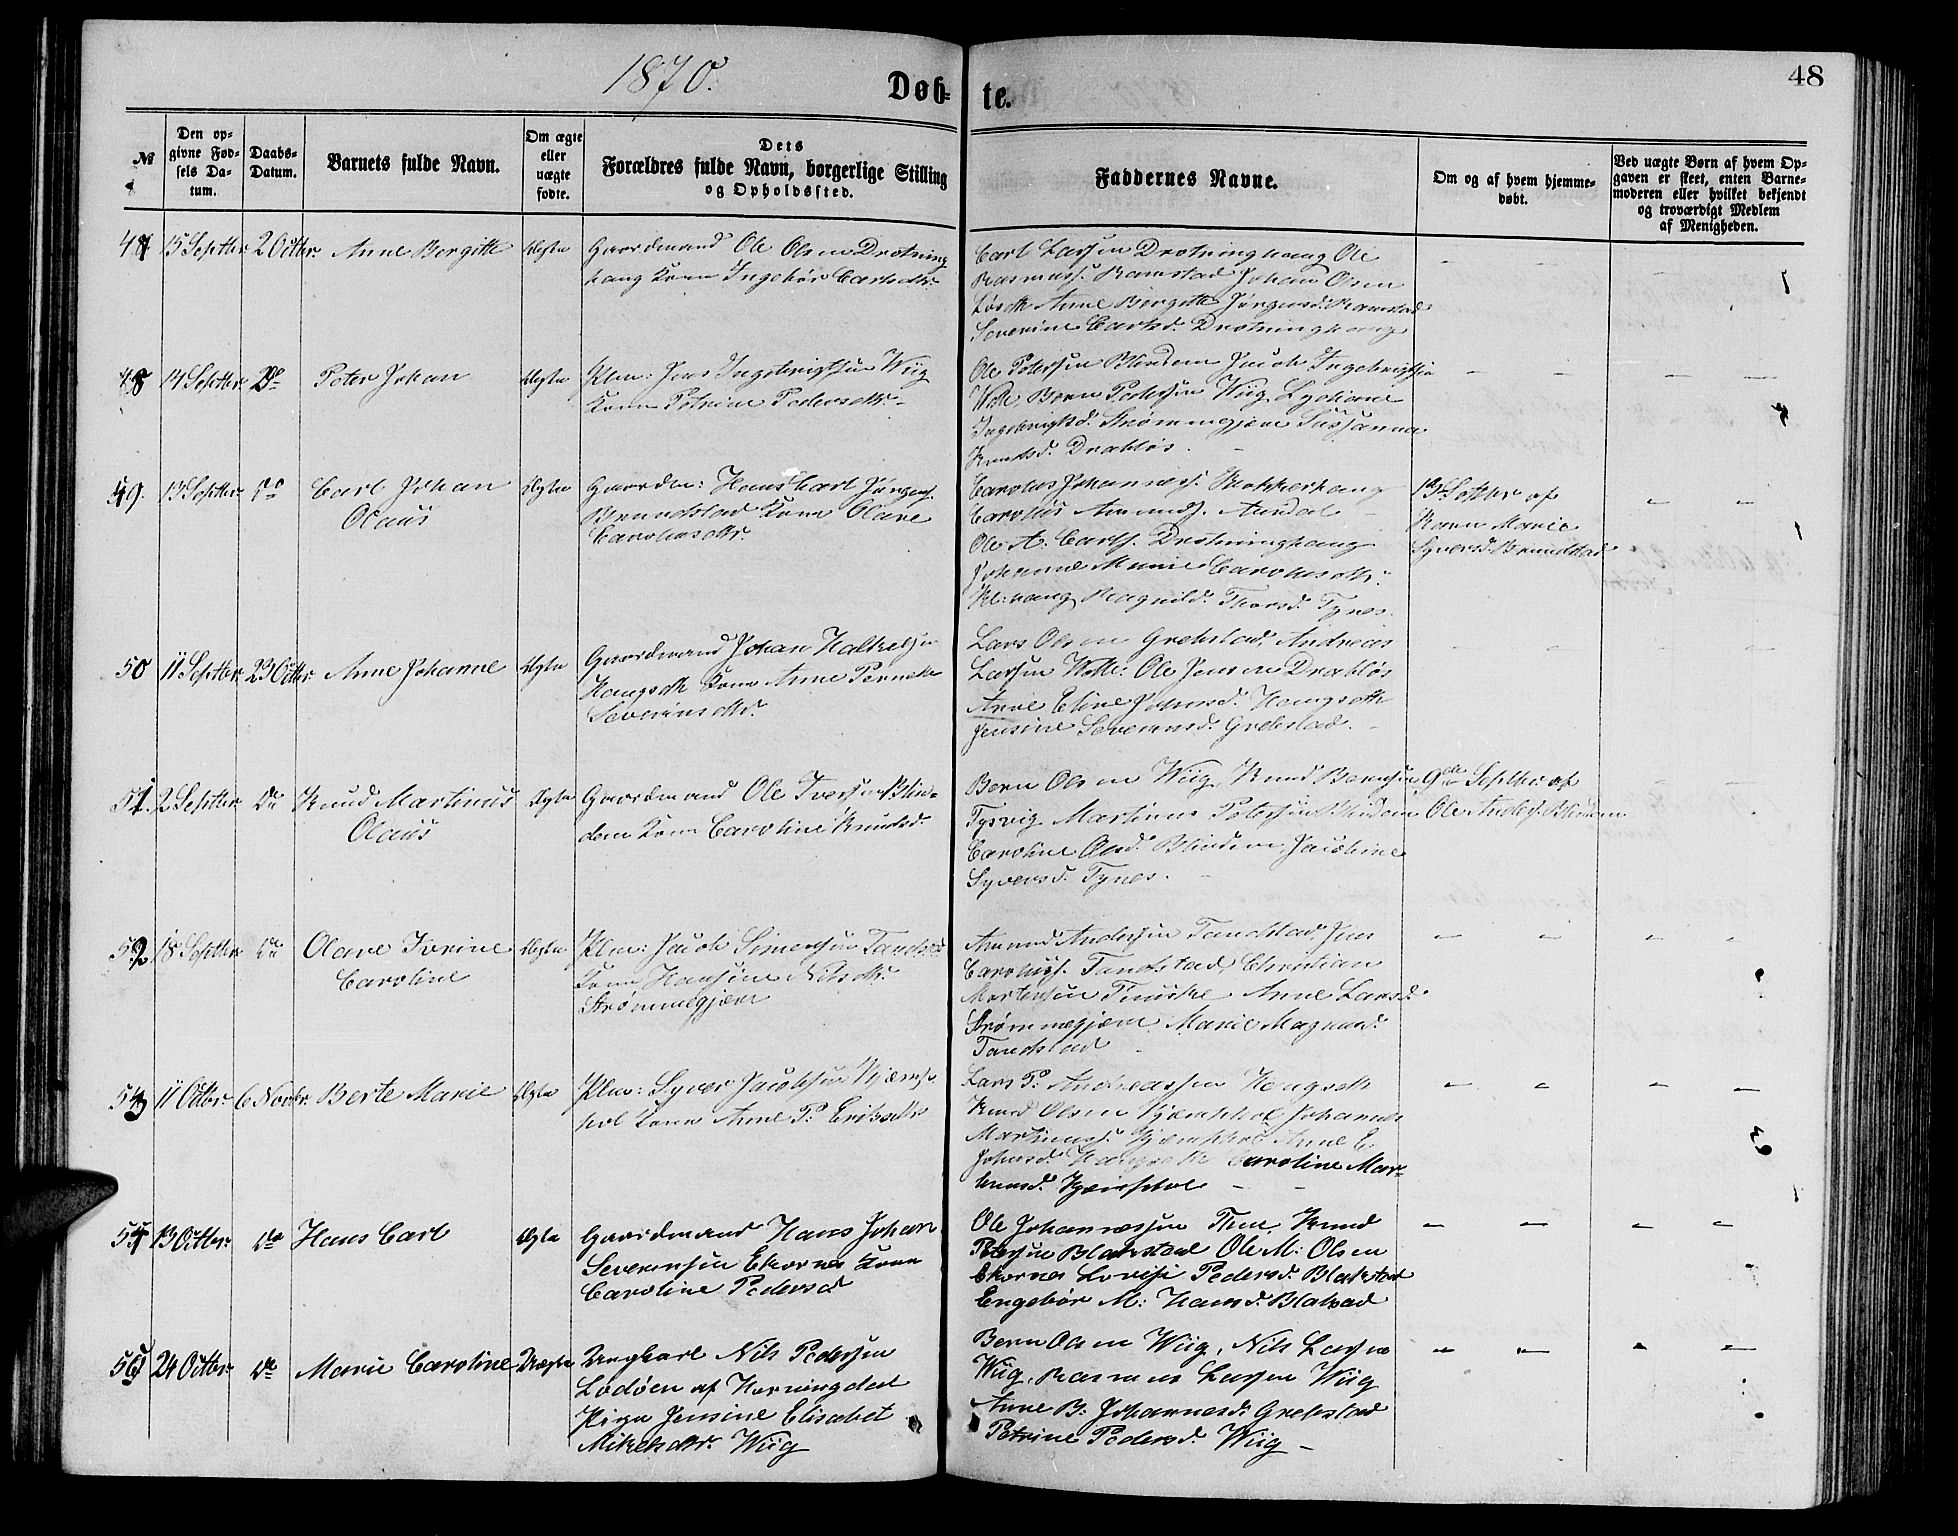 1870.
Døb-
te.
48
№
Den op-
givne Fød-
sels Da-
tum.
Daabs-
Datum.
Barnets fulde Navn.
Om ægte
eller
uægte
fødte.
Dets
Forældres fulde Navn, borgerlige Stilling
og Opholdssted.
Faddernes Navne.
Om og af hvem hjemme-
døbt.
Ved uægte Børn af hvem Op-
gaven er skeet, enten Barne-
moderen eller hvilket bekjendt
og troværdigt Medlem
af Menigheden.
47 15 Septbr. 2 Octbr. Anne Bergitte Ægte
Gaardmand Ole Olsen Drotning
haug Kone Ingebor Carlsdtr.
Carl Larsen Drotninghaug Ole
Rasmuss. Ramstad Johan Olsen
Anne Birgitte Jørgensd. Ramstad
Severine Carlsd. Drotninghaug
48 14 Septbr. Do Peter Johan Ægte
Plm: Jens Ingebrigtsen Wiig
Kone Petrine Pedersdtr.
Ole Petersen Blindem Jacob Ingebrigtsen
Bern Pedersen Wiig Lydiane
Ingebrigtsd. Strømmegjære Sussanna
Knudsd. Drabløs.
49. 13 Septbr. Do Carl Johan
Olaus
Ægte
Gaardm: Hans Carl Jørgens.
Brundstad Kone Olave
Carolusdtr.
Carolus Johanness. Klokkerhaug
Carolus Amunds. Aurdal
Ole A. Carls. Drotninghaug
Johanne Marie Carolusdtr.
Kl:haug Ragnild. Thorsd. Tynes.
13 Septbr af
Karn Marie
Syversd. Brundstad
50 11 Septbr. 23 Octbr. Anne Johanne Ægte
Gaardmand Johan
Haugseth Kone Anne Pernele
Severinsdtr.
Lars Olsen Grebstad. Andreas
Larsen Ole Jensen Drabløs
Anne Eline Johnsd. Haugseth
Jensine Severinsd. Grebstad.
51. 2 Septbr. Do Knud Martinus
Olaus
Ægte
Gaardmand Ole Iversen Blin-
dem Kone Caroline Knudsd.
Bern Olsen Wiig, Knud Bernsen
Tysvig Martinus Petersen Blindem
Caroline Olsd. Blindem Jacobine
Syversd. Tynes.
9de Septbr. af
Ole Anders. Blindem
52 18 Septbr. Do Olave Ivrine
Caroline
Ægte
Plm: Jacob Simensen Tandstad
Kone Hansine Nilsdtr.
Strømmegjære
Amund Andersen Tandstad, Jens
Caroluss. Tandstad, Christian
Martensen Anne Larsd.
Strømmegjære Marie Magnusd.
Tandstad
53 11 Octbr. 6 Novbr. Berte Marie Ægte
Plm: Syver Jacobsen Kjæmp-
hol Kone Anne P. Eriksdtr
Lars P. Andreassen Haugseth
Knud Olsen Kjæmphol Johannes
Martinuss. Kjæmphol Anne E.
Johnsd. Haugseth Caroline Mar-
tinusd. Kjæmphol
54 13 Octbr. Do Hans Carl Ægte
Gaardmand Hans Johan
Severinsen Ekornes Kone
Caroline Pedersd
Ole Johannessen Thue, Knud
Petersen Blakstad Ole M. Olsen
Ekornes Lovise Pedersd. Blakstad
Engebør M. Hansd. Blakstad
55 24 Octbr. Do Marie Caroline Uægte
Ungkarl Nils Pedersen
Lodøen af Horningdal
Pige Jensine Elisabet
Mikelsdtr. Wiig
Bern Olsen Wiig, Nils Larsen
Wiig, Rasmus Larsen Wiig
Anne B. Johannesd. Grebstad
Petrine Pedersd. Wiig